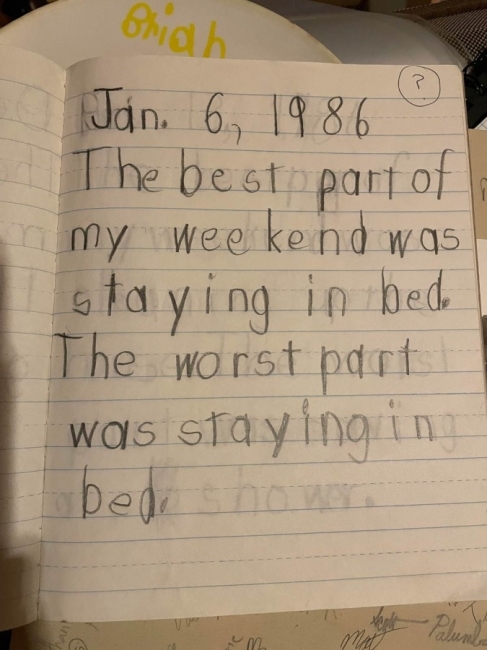 Brian
?
Jan. 6, 1986
The best part of
my weekend was
staying in bed.
The worst part
was staying in
bed.
shower.